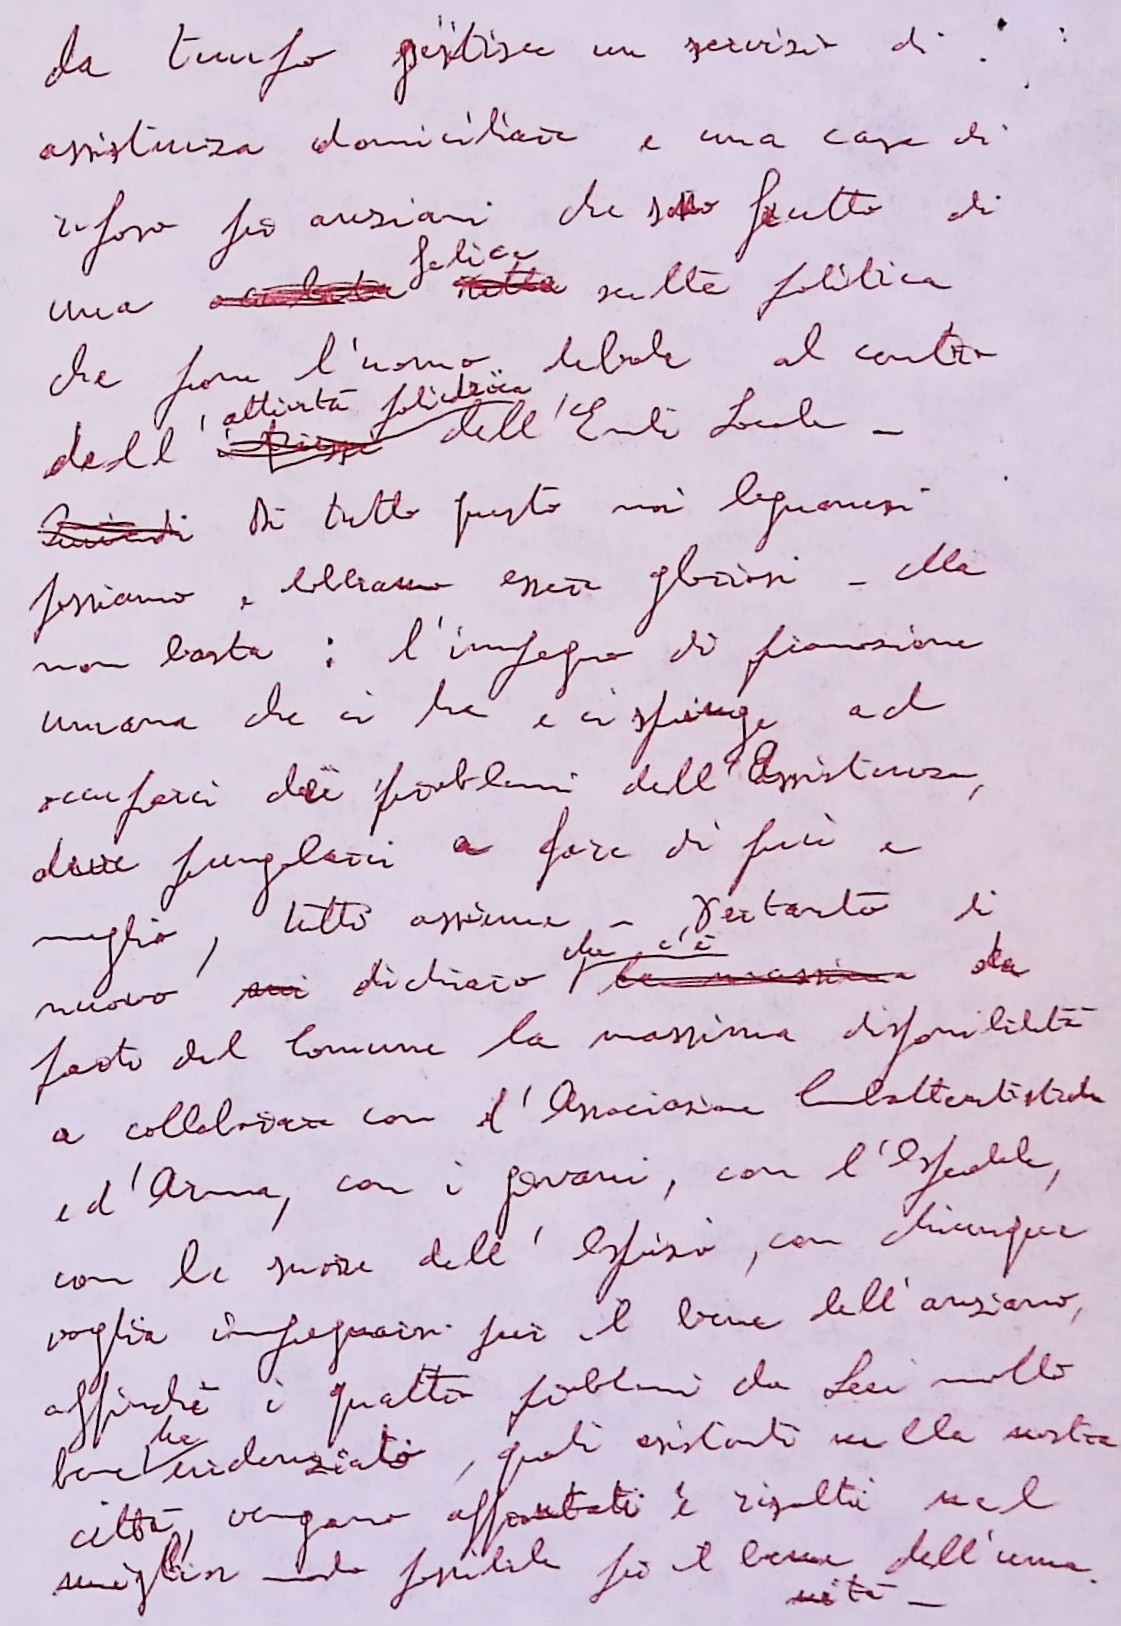 da tempo gestisce un servizio di
assistenza domiciliare e una casa di
riposo per anziani che sono frutto di
una felice scelta politica
che pone l'uomo debole al centro
dell'attività poliedrica dell'Ente Locale -
Di tutto questo noi legnanesi
possiamo e dobbiamo essere gloriosi - Ma
non basta : l'impegno di promozione
umana che ci ha e ci spinge ad
occuparci dei problemi dell'Assistenza,
deve pungolarci a fare di più e
meglio, tutti assieme - Pertanto di
nuovo dichiaro che c'è da
parte del Comune la massima disponibilità
a collaborare con l'Associazione Combattentistiche
e d'Arma, con i giovani, con l'Ospedale,
con le suore dell'Ospizio, con chiunque
voglia impegnarsi per il bene dell'anziano,
affinché i quattro problemi da Leei molto
bene evidenziato, quali esistenti nella nostra
città, vengano affrontati e risolti nel
miglior modo possibile per il bene dell'uma
nità -